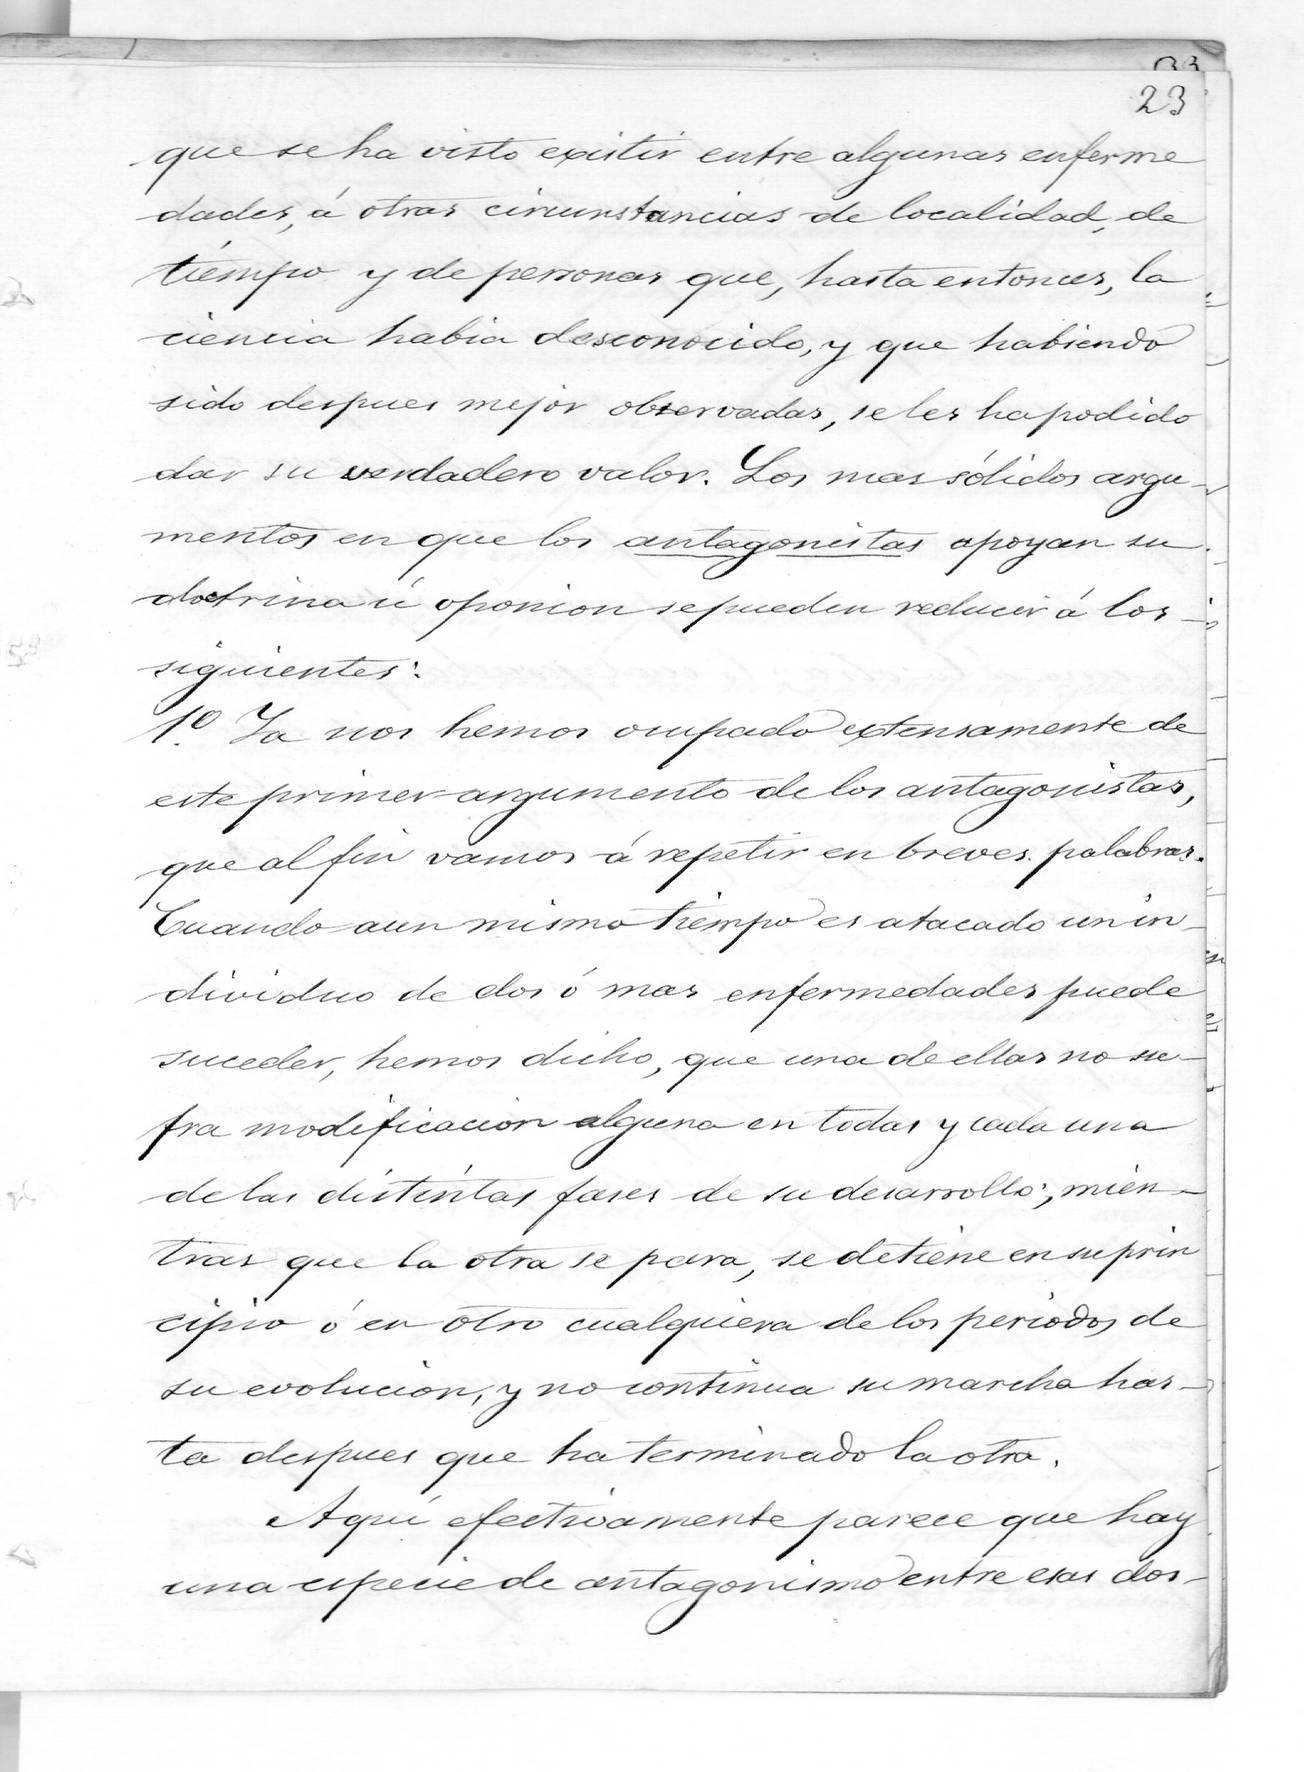 23
que se ha visto existir entre algunas enferme
dades, á otras circunstancias de localidad, de
tiempo y de personas que, hasta entonces, la
ciencia habia desconocido, y que habiendo
sido despues mejor observadas, se les ha podido
dar su verdadero valor. Los mas sólidos argu-
mentos en que los antagonistas apoyan su
doctrina ú opinion se pueden reducir á los
siguientes:
1º. Ya nos hemos ocupado extensamente de
este primer argumento de los antagonistas,
que al fin vamos á repetir en breves palabras.
Cuando aun mismo tiempo es atacado un in-
dividuo de dos ó mas enfermedades puede
suceder, hemos dicho, que una de ellas no su-
fra modificacion alguna en todas y cada una
de las distintas fases de su desarrollo; mien-
tras que la otra se para, se detiene en su prin
cipio ó en otro cualquiera de los periodos de
su evolucion, y no continua su marcha has-
ta despues que ha terminado la otra.
Aquí efectivamente parece que hay
una especie de antagonismo entre esas dos-